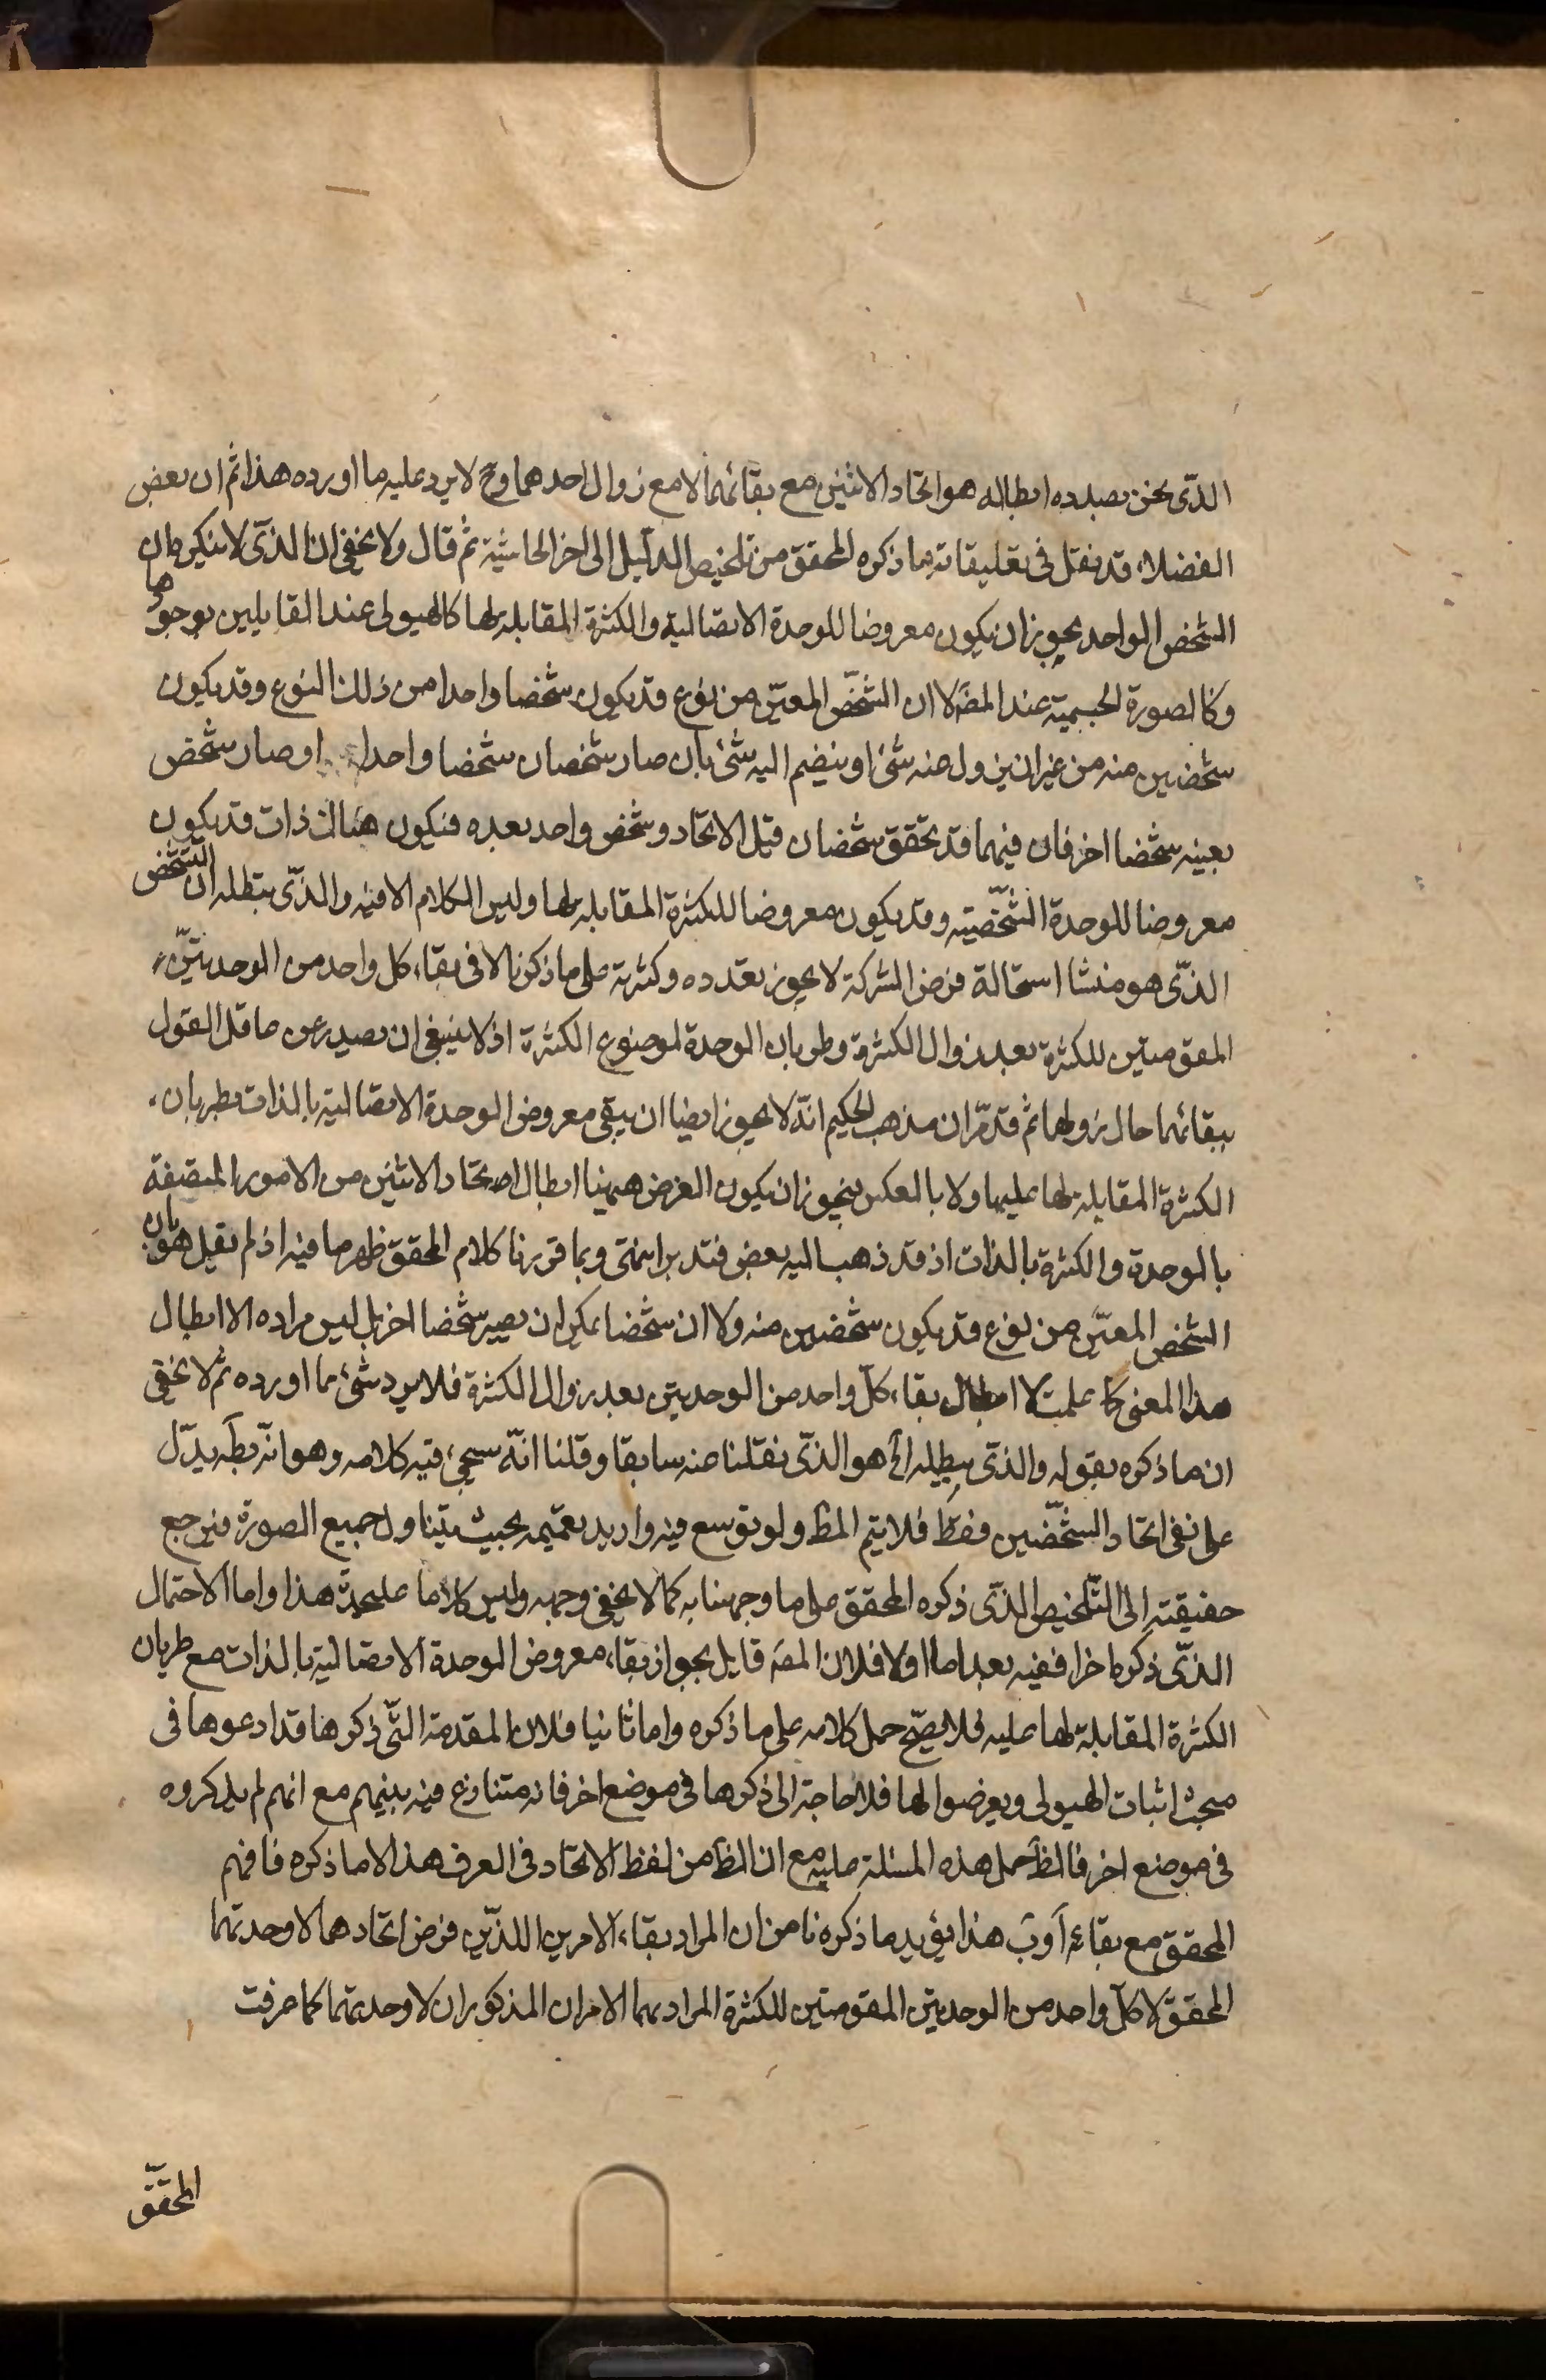 الذّى نحن بصدده ابطاله هو اتحاد الاثنين مع بقائهما لا مع زوال احدهما وح لا يرد عليه ما اورده هذا ثم ان بعض
الفضلاء قد نقل فى تعليقاته ما ذكره المحقق من تلخيص الدليل الى اخر الحاشية ثم قال ولا يخفى ان الذى لا ينكر هو ان
الشخص الواحد يجوز ان يكون معروضا للوحدة الاتصالية والكثرة المقابلة لها كالهيولى عند القايلين بوجودها
وكالصورة الجسمية عند المص لا ان الشخص المعيّن من نوع قد يكون شخصا واحدا من ذلك النوع وقد يكون
شخصين منه من غير ان يزول منه شئ او ينضم اليه شئ بان صار شخصان شخصا واحدا او صار شخص
بعينه شخصا اخر فان فيهما قد تحقق شخصان قبل الاتحاد وشخص واحد بعده فيكون هناك ذات قد يكون
معروضا للوحدة الشخصّية وقد يكون معروضا للكثرة المقابلة لها وليس الكلام الا فيه والذّى يبطله ان التشخص
الذّى هو منشا استحالة فرض الشركة لا يجوز تعدده وكثرته على ما ذكرنا لا فى بقاء كل واحد من الوحدتيّن
المقومتين للكثرة بعد زوال الكثرة وطريان الوحدة لموضوع الكثرة اذ لا ينبغى ان يصدر عن عاقل القول
ببقائهما حال زوالها ثم قد مرّ ان مذهب الحكيم انّه لا يجوز ايضا ان يبقى معروض الوحدة الاتصالية بالذات بطريان
الكثرة المقابلة لها عليها ولا بالعكس فيجوز ان يكون الغرض ههنا ابطال اتحاد الاثنين من الامور المتصفة
بالوحدة والكثرة بالذات اذ قد ذهب اليه بعض فتدبر انتهى وبما قررنا كلام المحقق ظهر ما فيه اذ لم يقل هو بان
الشخص المعيّن من نوع قد يكون شخصين منه ولا ان شخصا يمكن ان يصير شخصا اخر بل ليس مراده الا ابطال
هذا المعنى كما علمت لا ابطال بقاء كلّ واحد من الوحدتين بعد زوال الكثرة فلا يرد شئ مما اورده ثم لا يخفى
ان ما ذكره بقوله والذى يبطله الخ هو الذّى نقلنا منه سابقا وقلنا انّه سيجئ فيه كلامه وهو انّه بظه يدّل
على نفى اتحاد الشخّصين فقط فلا يتم المط ولو توسع فيه واريد تعميمه بحيث يتناول جميع الصورة فيرجع
حقيقته الى التّلخيص الذّى ذكره المحقق على ما وجهنا به كما لا يخفى وجهه وليس كلاما عليحدّة هذا واما الاحتمال
الذّى ذكره اخرا ففيه بعد اما اولا فلان المص قايل بجواز بقاء معروض الوحدة الاتصالية بالذات مع طريان
الكثرة المقابلة لها عليه فلا يصّح حمل كلامه على ما ذكره واما ثانيا فلان المقدمة التّى ذكرها قد ادعوها فى
مبحث اثبات الهيولى وتعرضوا لها فلا حاجة الى ذكرها فى موضع اخر فانه متنازع فيه بينهم مع انهم لم يذكروه
فى موضع اخر فالظ حمل هذه المسئلة عليه مع ان الظ من لفظ الاتحاد فى العرف هذا لا ما ذكره فافهم
المحقق مع بقاء آ وب هذا يؤيد ما ذكرنا من ان المراد بقاء الامرين اللذّين فرض اتحادهما لا وحدتهما
المحققّ لا كلّ واحد من الوحدتين المقومتين للكثرة المراد بهما الامران المذكوران لا وحدتهما كما عرفت
المحقّق